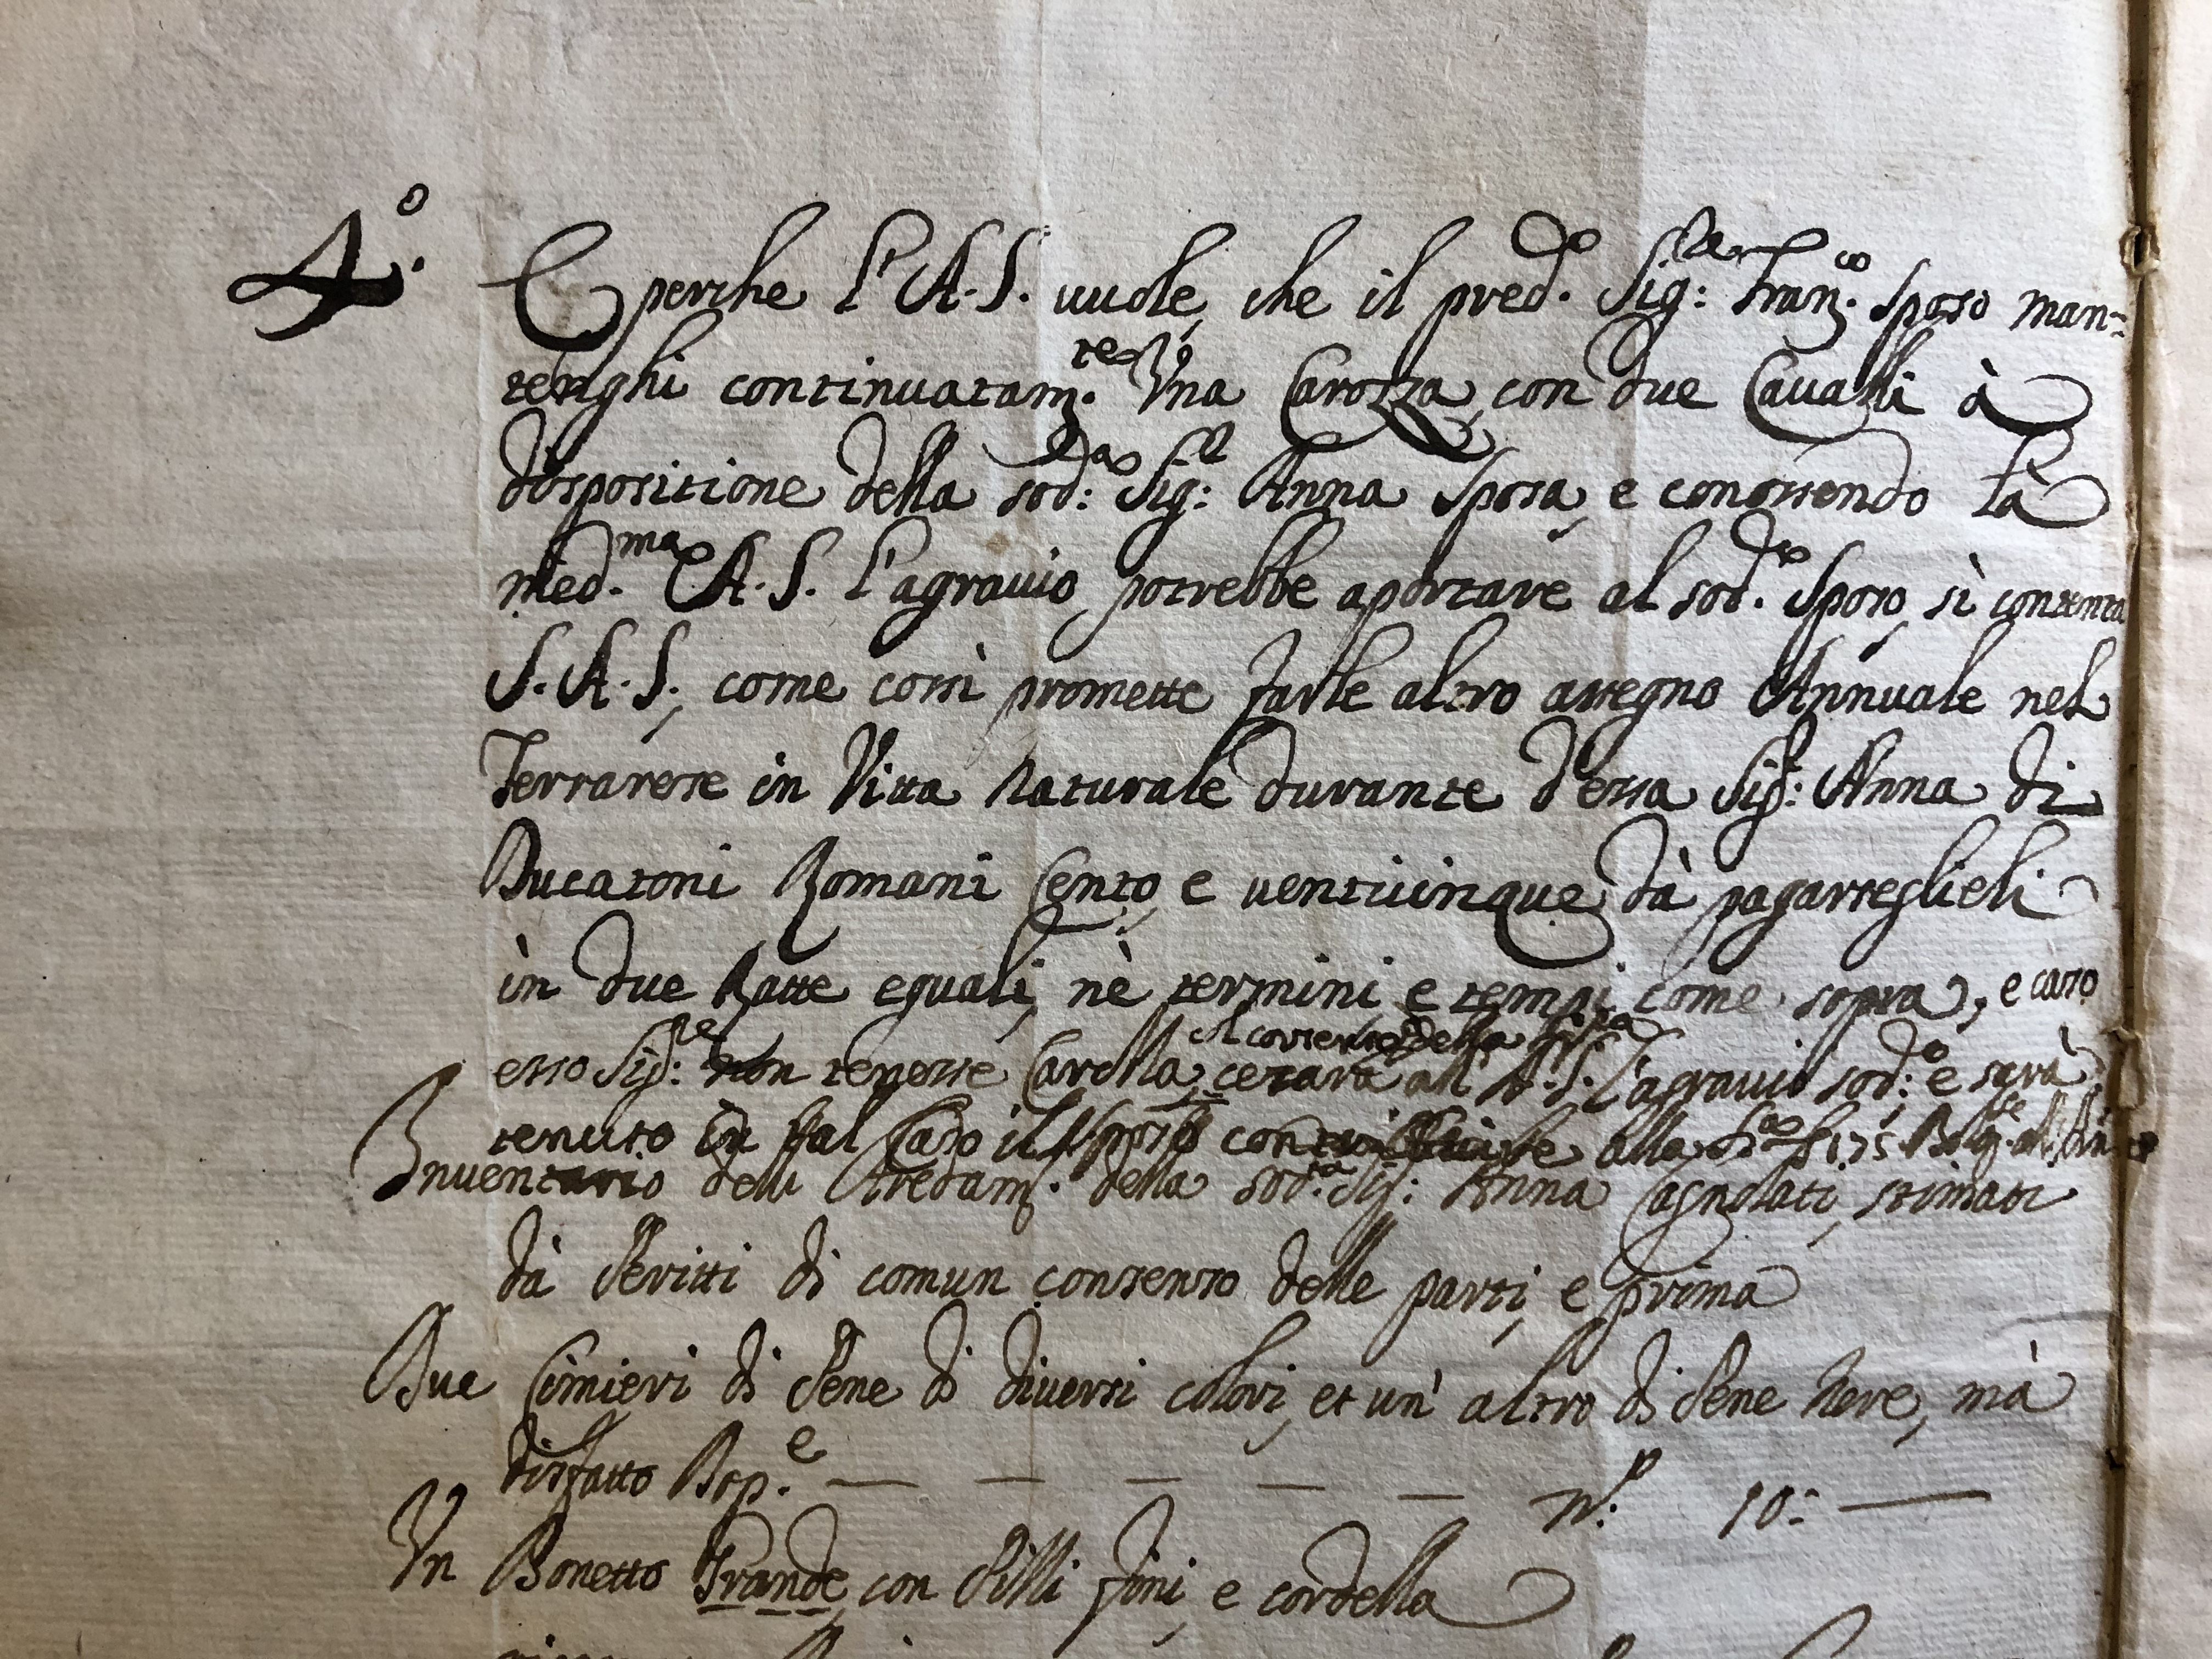 4.º E perche l'A.S. uuole, che il pred.º Sig:re Fran.co Sposo man=
tenghi continuatam.te Vna Carozza, con due Caualli à
dispositione della sod:a Sig:a Anna Sposa, e conossendo la
med.ma A.S. l'agrauio, potrebbe aportare al sod.º Sposo, si contenta
S.A.S., come cossì promette farle altro assegno Annuale nel
Ferrarese in Vitta Naturale durante d'essa Sig:a Anna di
Ducatoni Romani Cento, e uenticinque dà pagarseglieli
in due Ratte eguali, nè termini, e tempi come sopra, e caso
Al corseruo della
esso Sig:re non tenesse Carozza, cesarà all'A.S. l'agrauio sod:º e sarà
tenuto in tal Caso il Sposo alla
Inuentario delli Aredam.ti della sod.ta Sig:a Anna Cagnolati, stimati
dà Peritti di comun consenso delle parti, e prima
Due Cimieri di Pene di diuersi colori, et un' altro di Pene Nere, mà
disfatto Bsp.e — — — — — n.º 10:—
Vn Bonetto Grande, con Pilli fini, e cordella